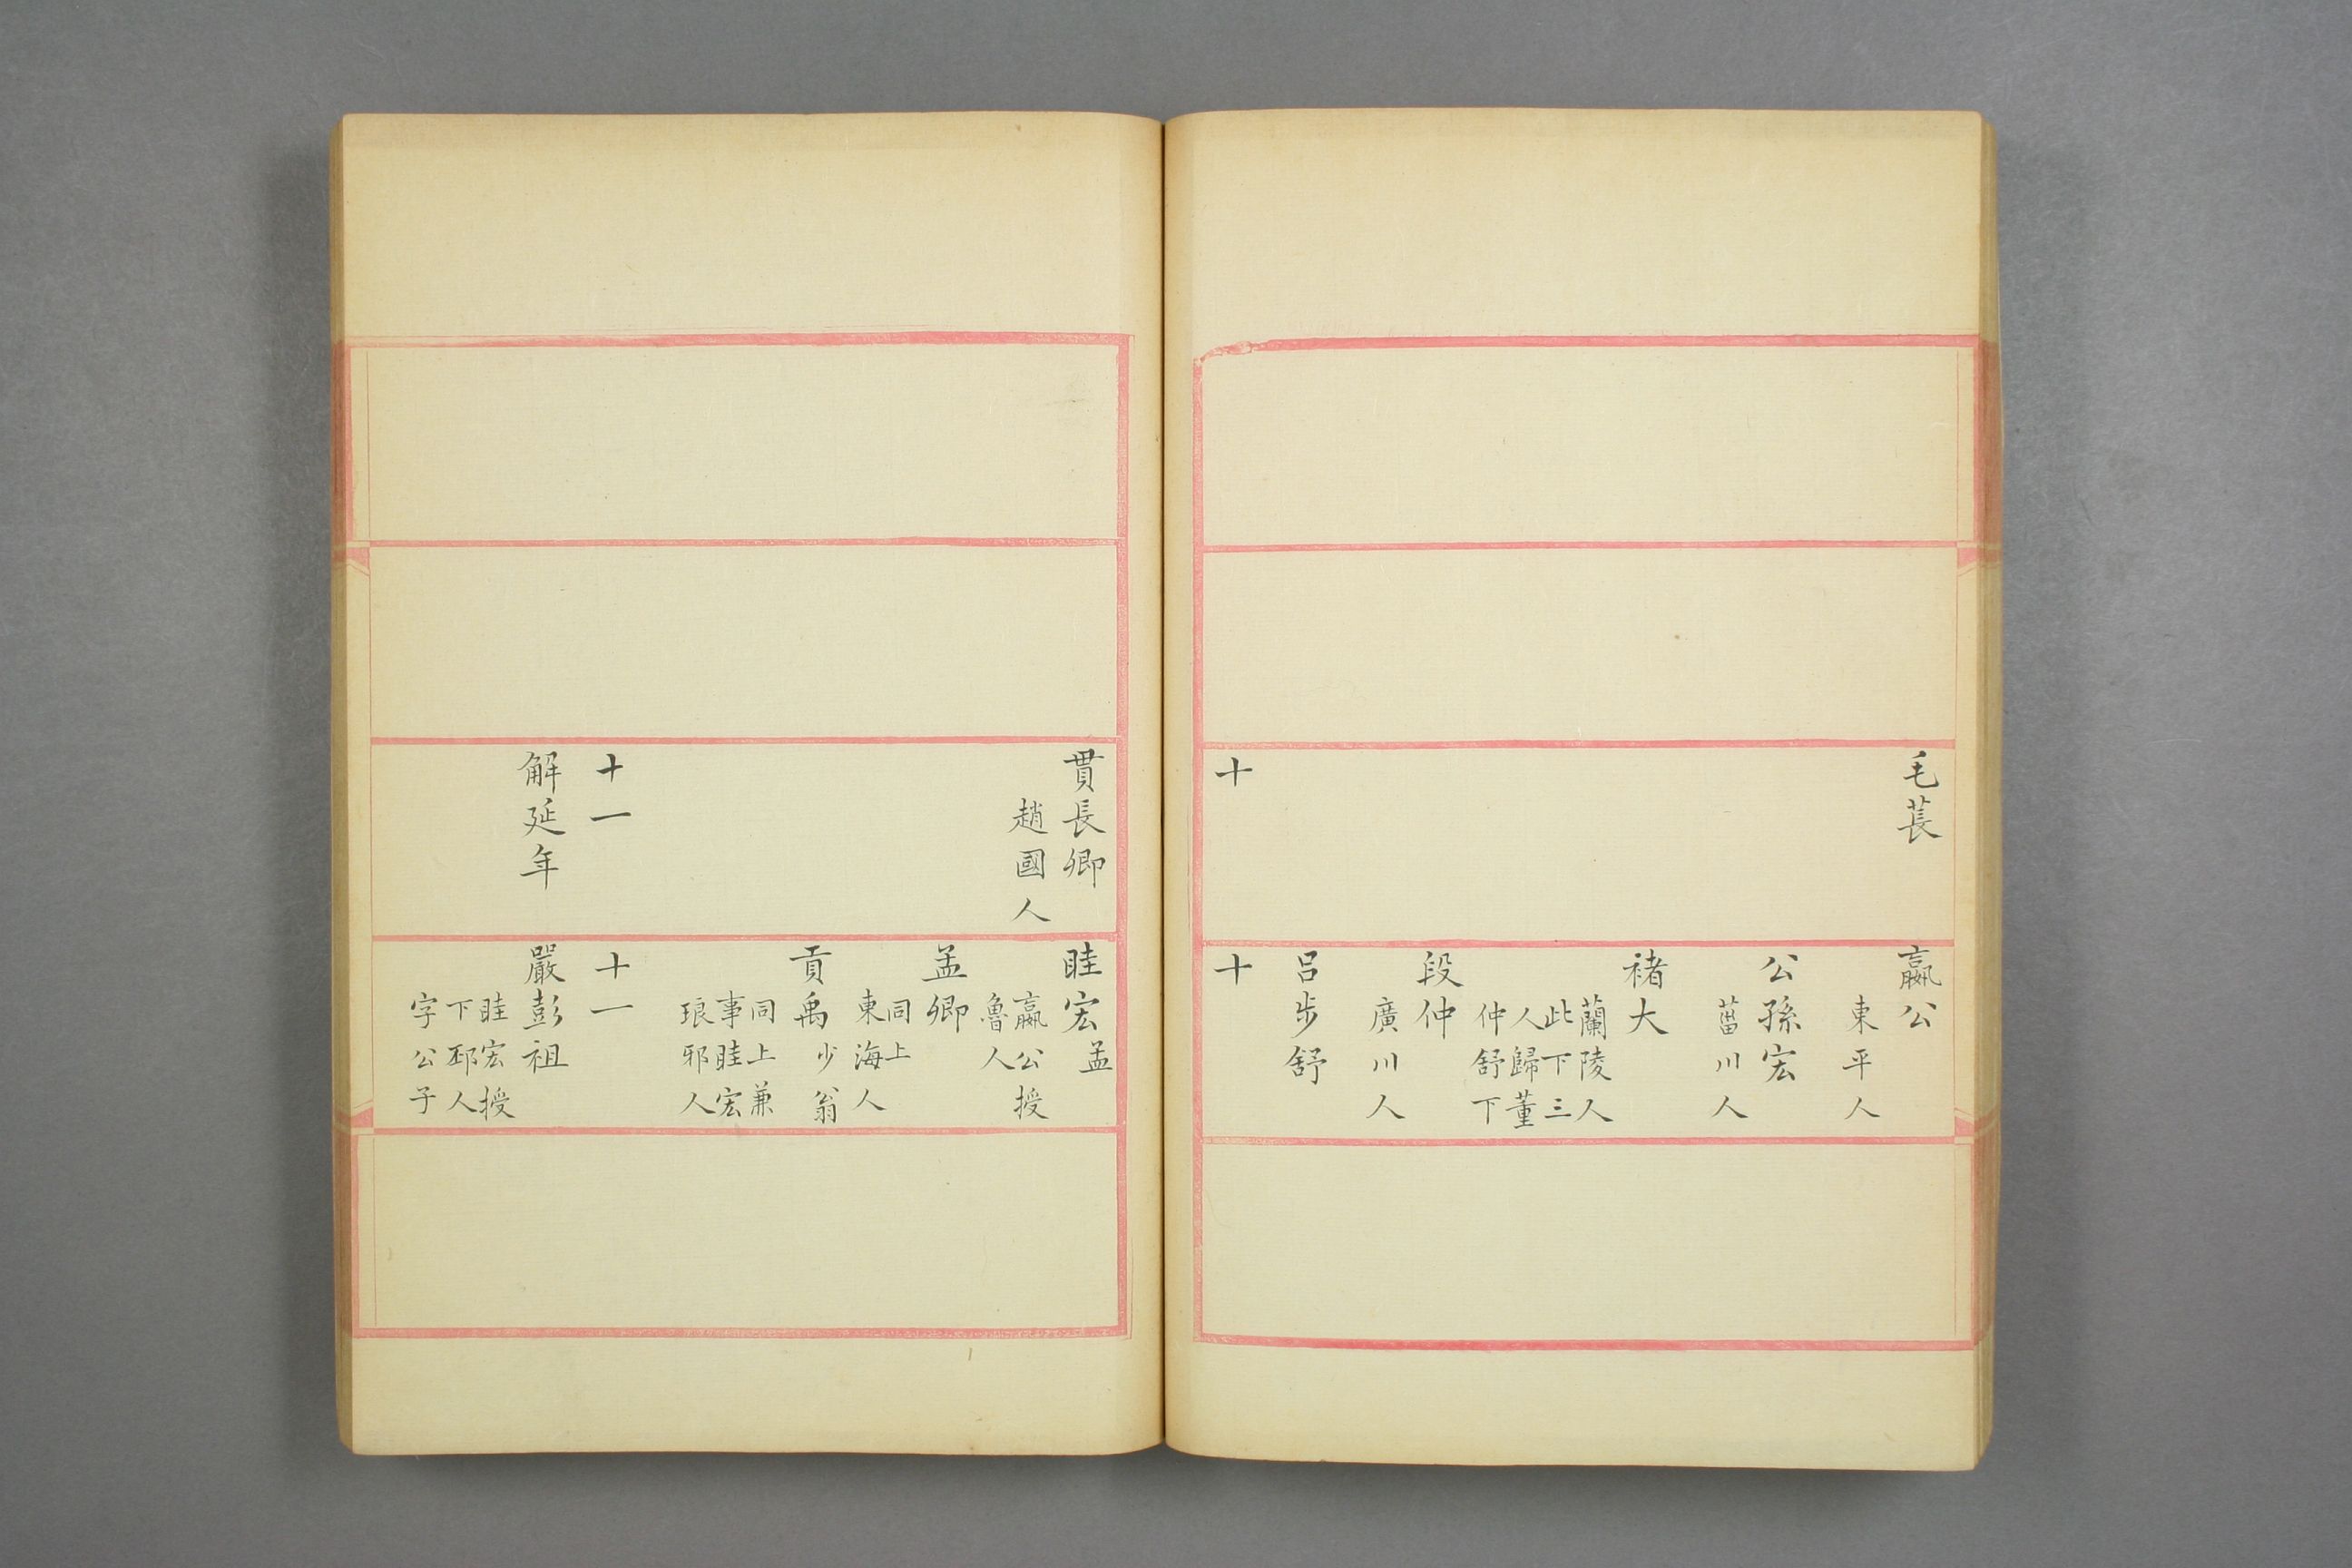 毛萇
十
嬴公
東平人
公孫宏
菑川人
褚大
蘭陵人
此下三
人歸董
仲舒下
段仲
廣川人
呂步舒
十
貫長卿
趙國人
十一
解延年
眭宏孟
嬴公授
魯人
孟卿
同上
東海人
貢禹少翁
同上兼
事眭宏
琅邪人
十一
嚴彭祖
眭宏授
下邳人
字公子